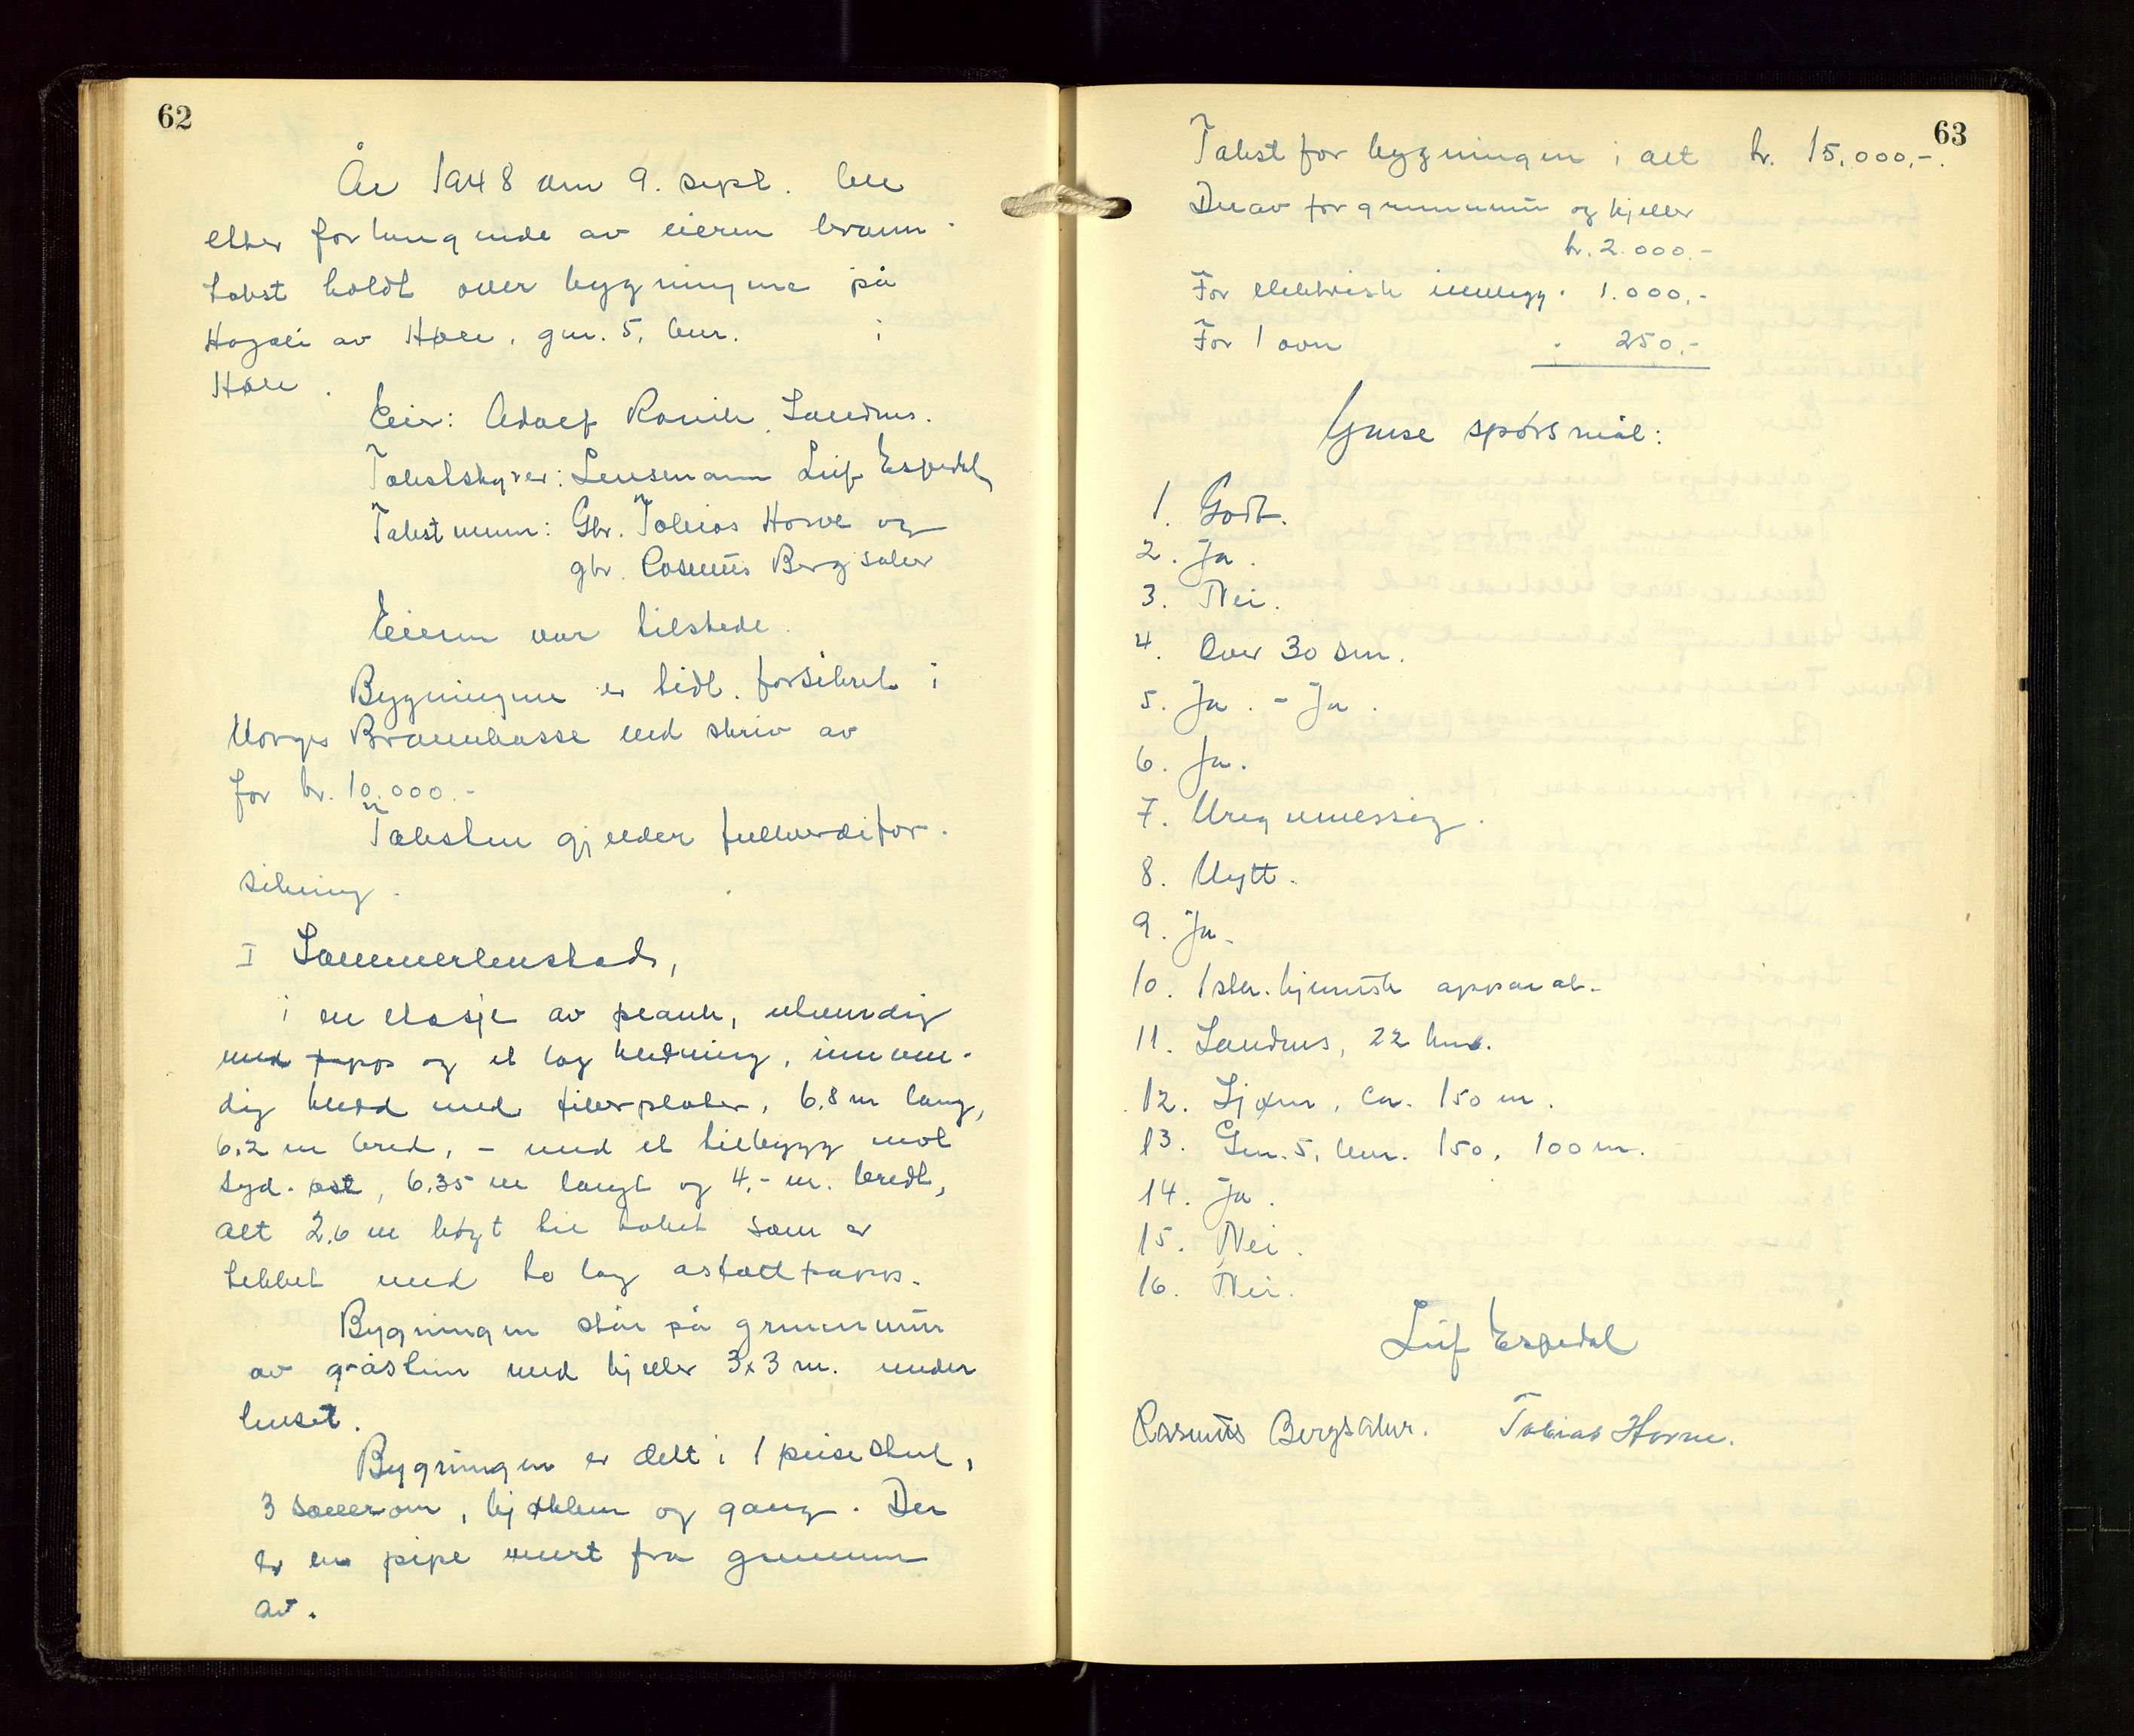 62
År 1948 den 9. sept. ble
etter forlangende av eieren brann-
takst holdt over bygningene på
Hogali av Høle, gnr. 5, bnr. i
Høle.
Eier: Adolf Ravik, Sandnes.
Takstskyver: Lensmann Leif Espedal,
Takstmenn: Gbr. Tobias Horve og
gbr. Rasmus Bergsaker
Eieren var tilstede.
Bygningene er tidl. forsikret i
Norges Brannkasse ved skriv av
for kr. 10.000.-
Taksten gjelder fullverdifor-
sikring.
I Sommerbustad,
i en etasje av plank, utvendig
med papp og et lag kledning, innven-
dig kledd med fiberplater, 6,8 m lang,
6,2 m bred, - med et tilbygg mot
syd-ost, 6,35 m langt og 4,- m. bredt,
alt 2,6 m høgt til taket som er
tekket med to lag asfaltpapp.
Bygningen står på grunnmur
av gråstein med kjeller 3x3 m. under
huset.
Bygningen er delt i 1 peisestue,
3 soverom, kjøkken og gang. Der
er en pipe murt fra grunnen
av.
63
Takst for bygningen i alt kr. 15.000,-.
Derav for grunnmur og kjeller
kr. 2.000.-
For elektrisk innlegg " 1.000,-
For 1 ovn " 250.-
Ymse spørsmål:
1. Godt.
2. Ja.
3. Nei.
4. Over 30 sm.
5. Ja. - Ja.
6. Ja.
7. Uregelmessig.
8. Nytt.
9. Ja.
10. 1 stk. kjemisk apparat.
11. Sandnes, 22 km.
12. Sjøen, ca. 150 m.
13. Gnr. 5, bnr. 150, 100 m.
14. Ja.
15. Nei.
16. Nei.
Leif Espedal
Rasmus Bergsaker. Tobias Horve.